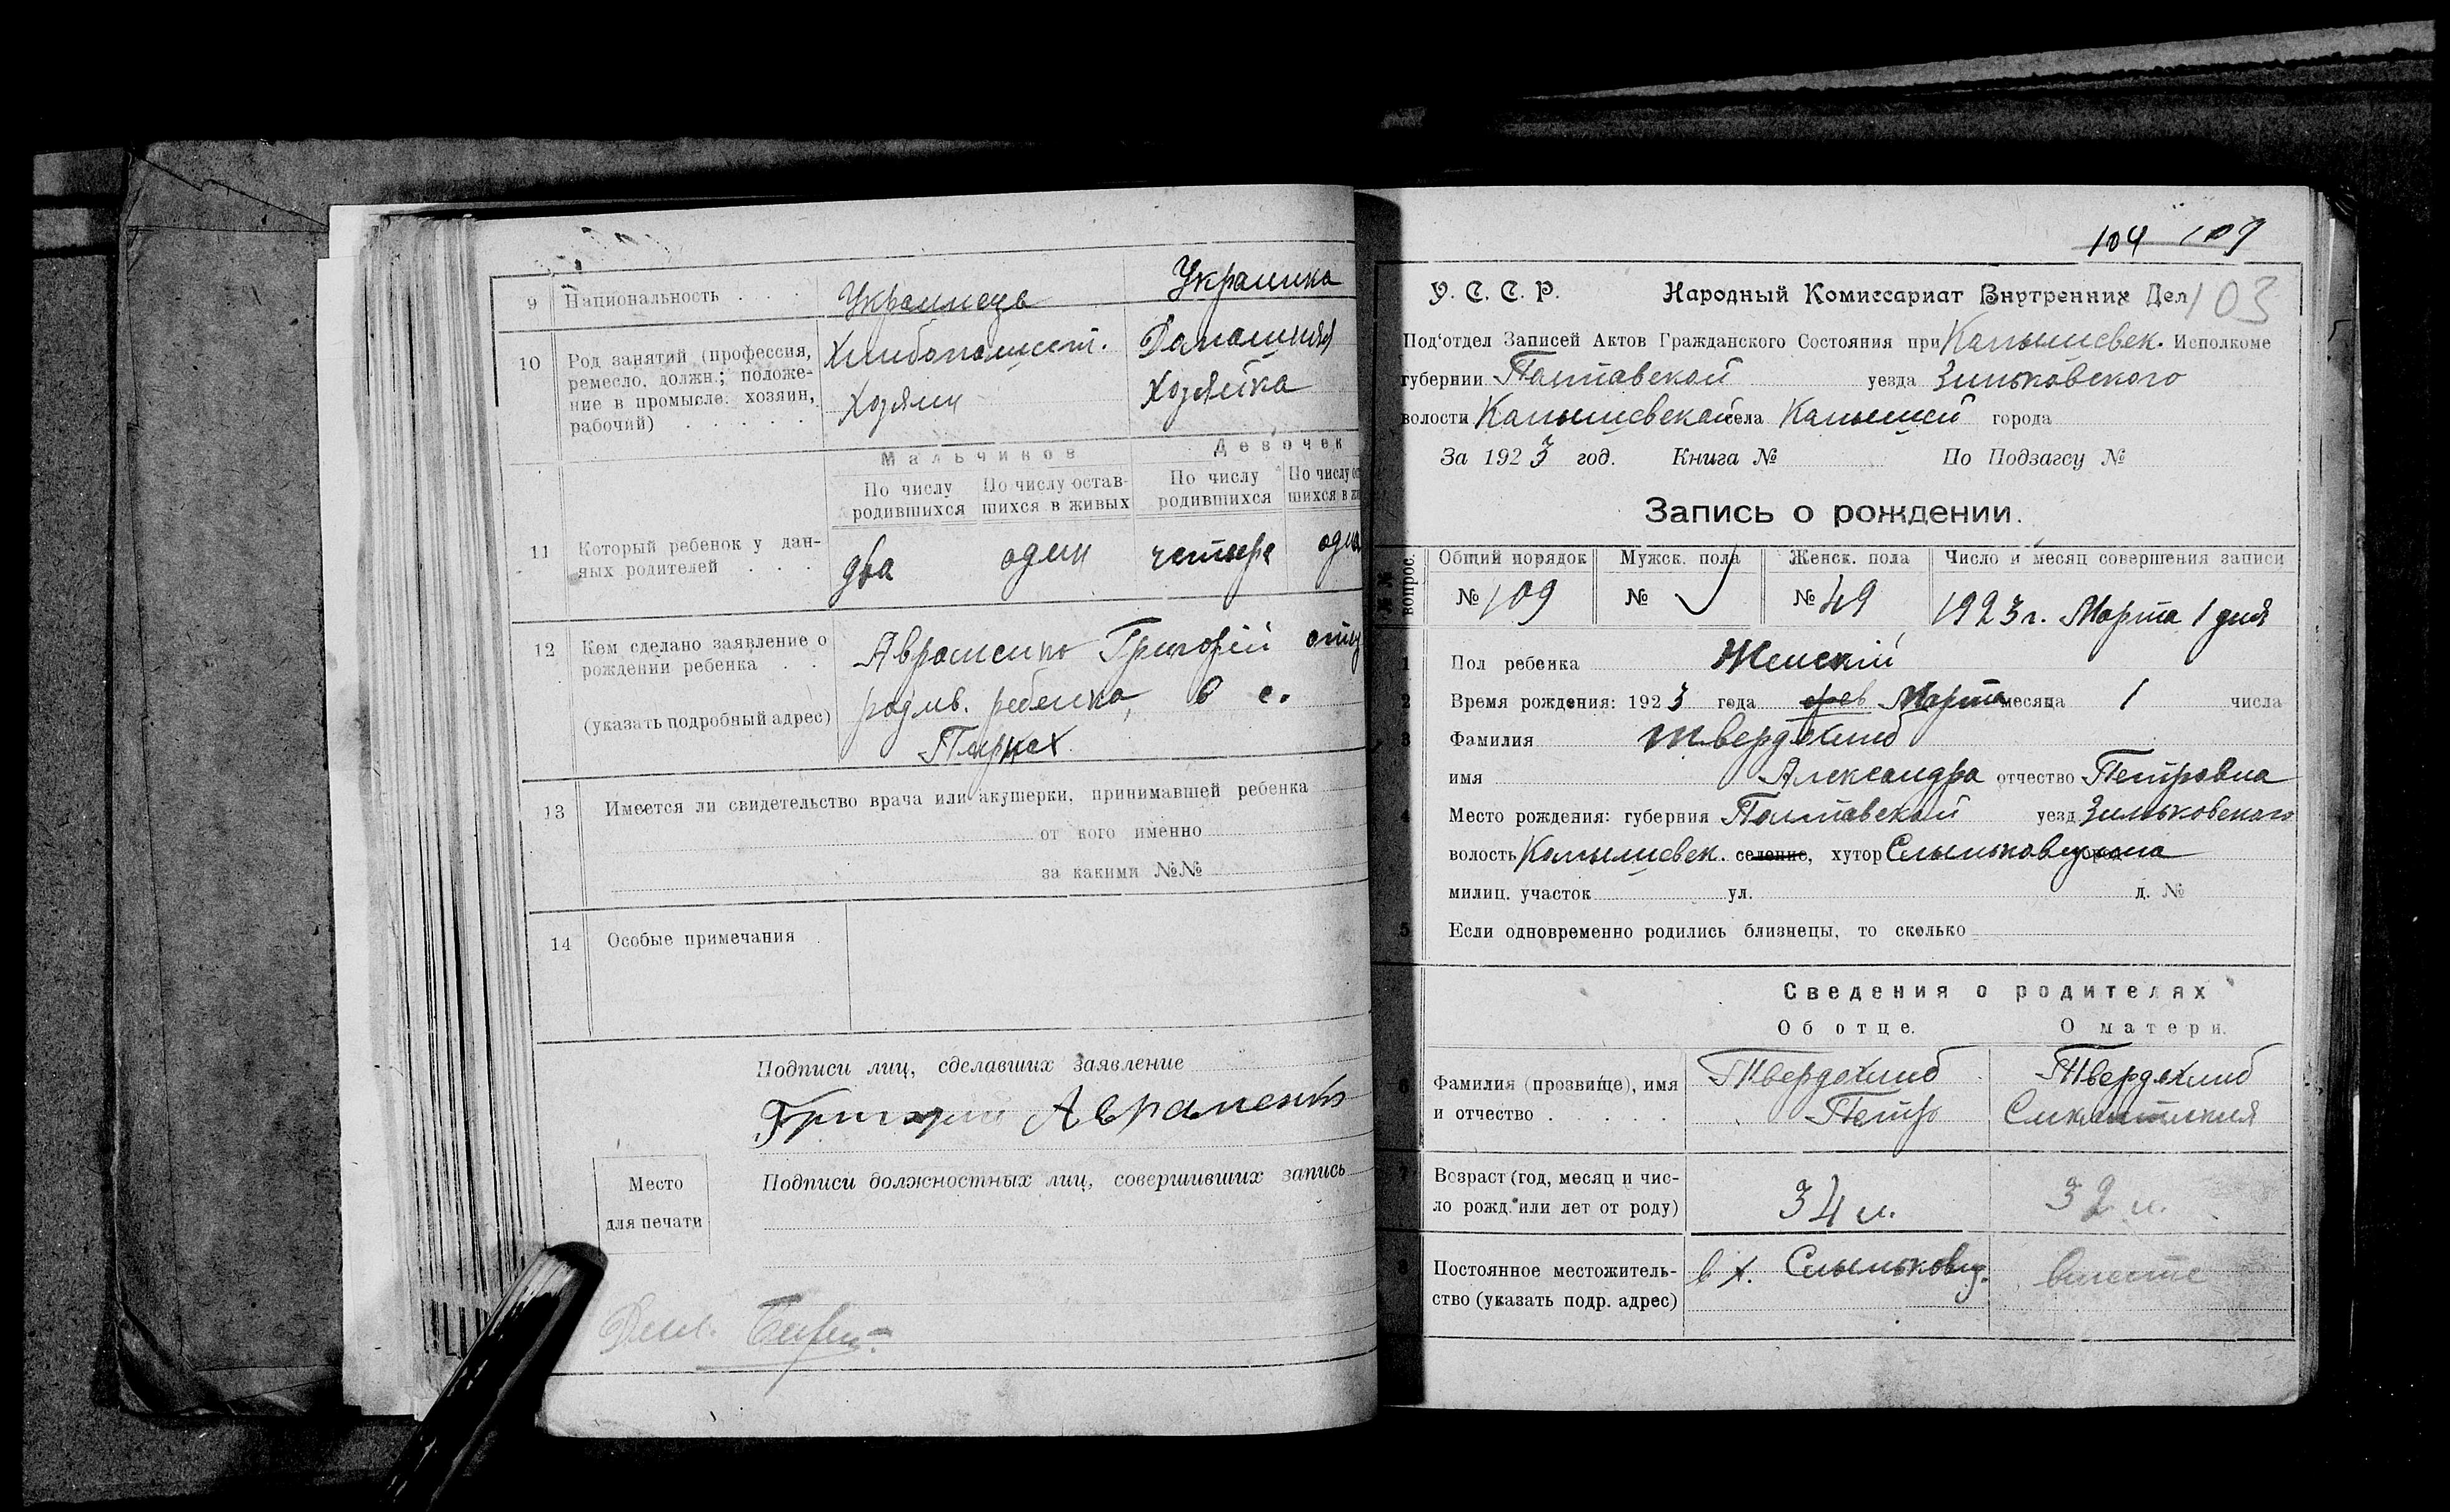 9 Национальность . . . Украинець Украинка
10 Род занятий (профессия, ремесло, должн.; положение в промысле: хозяин, рабочий) . . . . .
Хлибопашест. Домашняя
Хозяин Хозяйка
Мальчиков Девочек
По числу родившихся По числу оставшихся в живых По числу родившихся По числу
11 Который ребенок у данных родителей . . .
два один четыре одна
12 Кем сделано заявление о рождении ребенка . .
(указать подробный адрес)
Авраменко Григорій отец
родив. ребенка, в с.
13 Имеется ли свидетельство врача или акушерки, принимавшей ребенка
от кого именно
за какими №№
14 Особые примечания
Подписи лиц, сделавших заявление
Григорий Авраменко
Место
для печати
Подписи должностных лиц, совершивших запись
104 109
У. С. С. Р. Народный Комиссариат Внутренних Дел 103
Под'отдел Записей Актов Гражданского Состояния при Камышевск. Исполкоме
губернии Полтавской уезда Зиньковского
волости Камышевской села Камышей города
За 1923 год. Книга № По Подзагсу №
Запись о рождении.
№№ вопрос. Общий порядок Мужск. пола Женск. пола Число и месяц совершения записи
№ 109 № № 49 1923 г. Марта 1 дня
1 Пол ребенка Женский
2 Время рождения: 1923 года фев Марта месяца 1 числа
3 Фамилия Твердохлиб
имя Александра отчество Петровна
4 Место рождения: губерния Полтавской уезд Зиньковского
волость Камышевск. селение, хутор
милиц. участок ул. д. №
5 Если одновременно родились близнецы, то сколько
Сведения о родителях
Об отце. О матери.
6 Фамилия (прозвище), имя и отчество . . . .
Твердохлиб Твердохлиб
Петр
7 Возраст (год, месяц и число рожд. или лет от роду)
34 л. 32 л.
8 Постоянное местожительство (указать подр. адрес)
в х. вместе